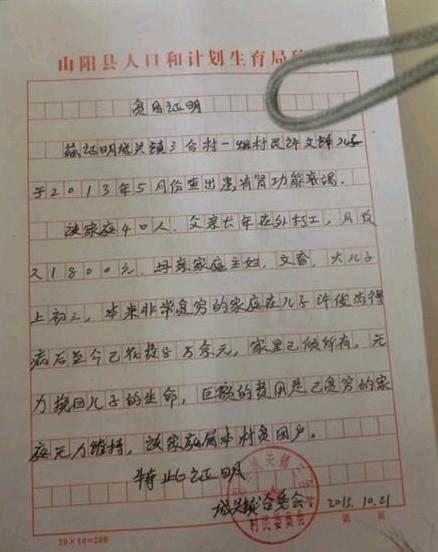 山阳县人口和计划生育局
贫困证明
兹证明城关镇三台村一组村民许文锋儿子
于2013年5月份查出患有肾功能衰竭.
该家庭4口人.父亲长年在外打工,月收
入1800元.母亲家庭主妇,文盲,大儿子
上初三,本来非常贫穷的家庭在儿子许俊杰得
病后至今已花费万余元,家里已倾所有,无
力挽回儿子的生命,巨额的费用是已贫穷的家
庭无力维持,该家庭属本村贫困户。
特此证明
城关镇台委会 2015.10.21
村民委员会
第 页
20×10=200